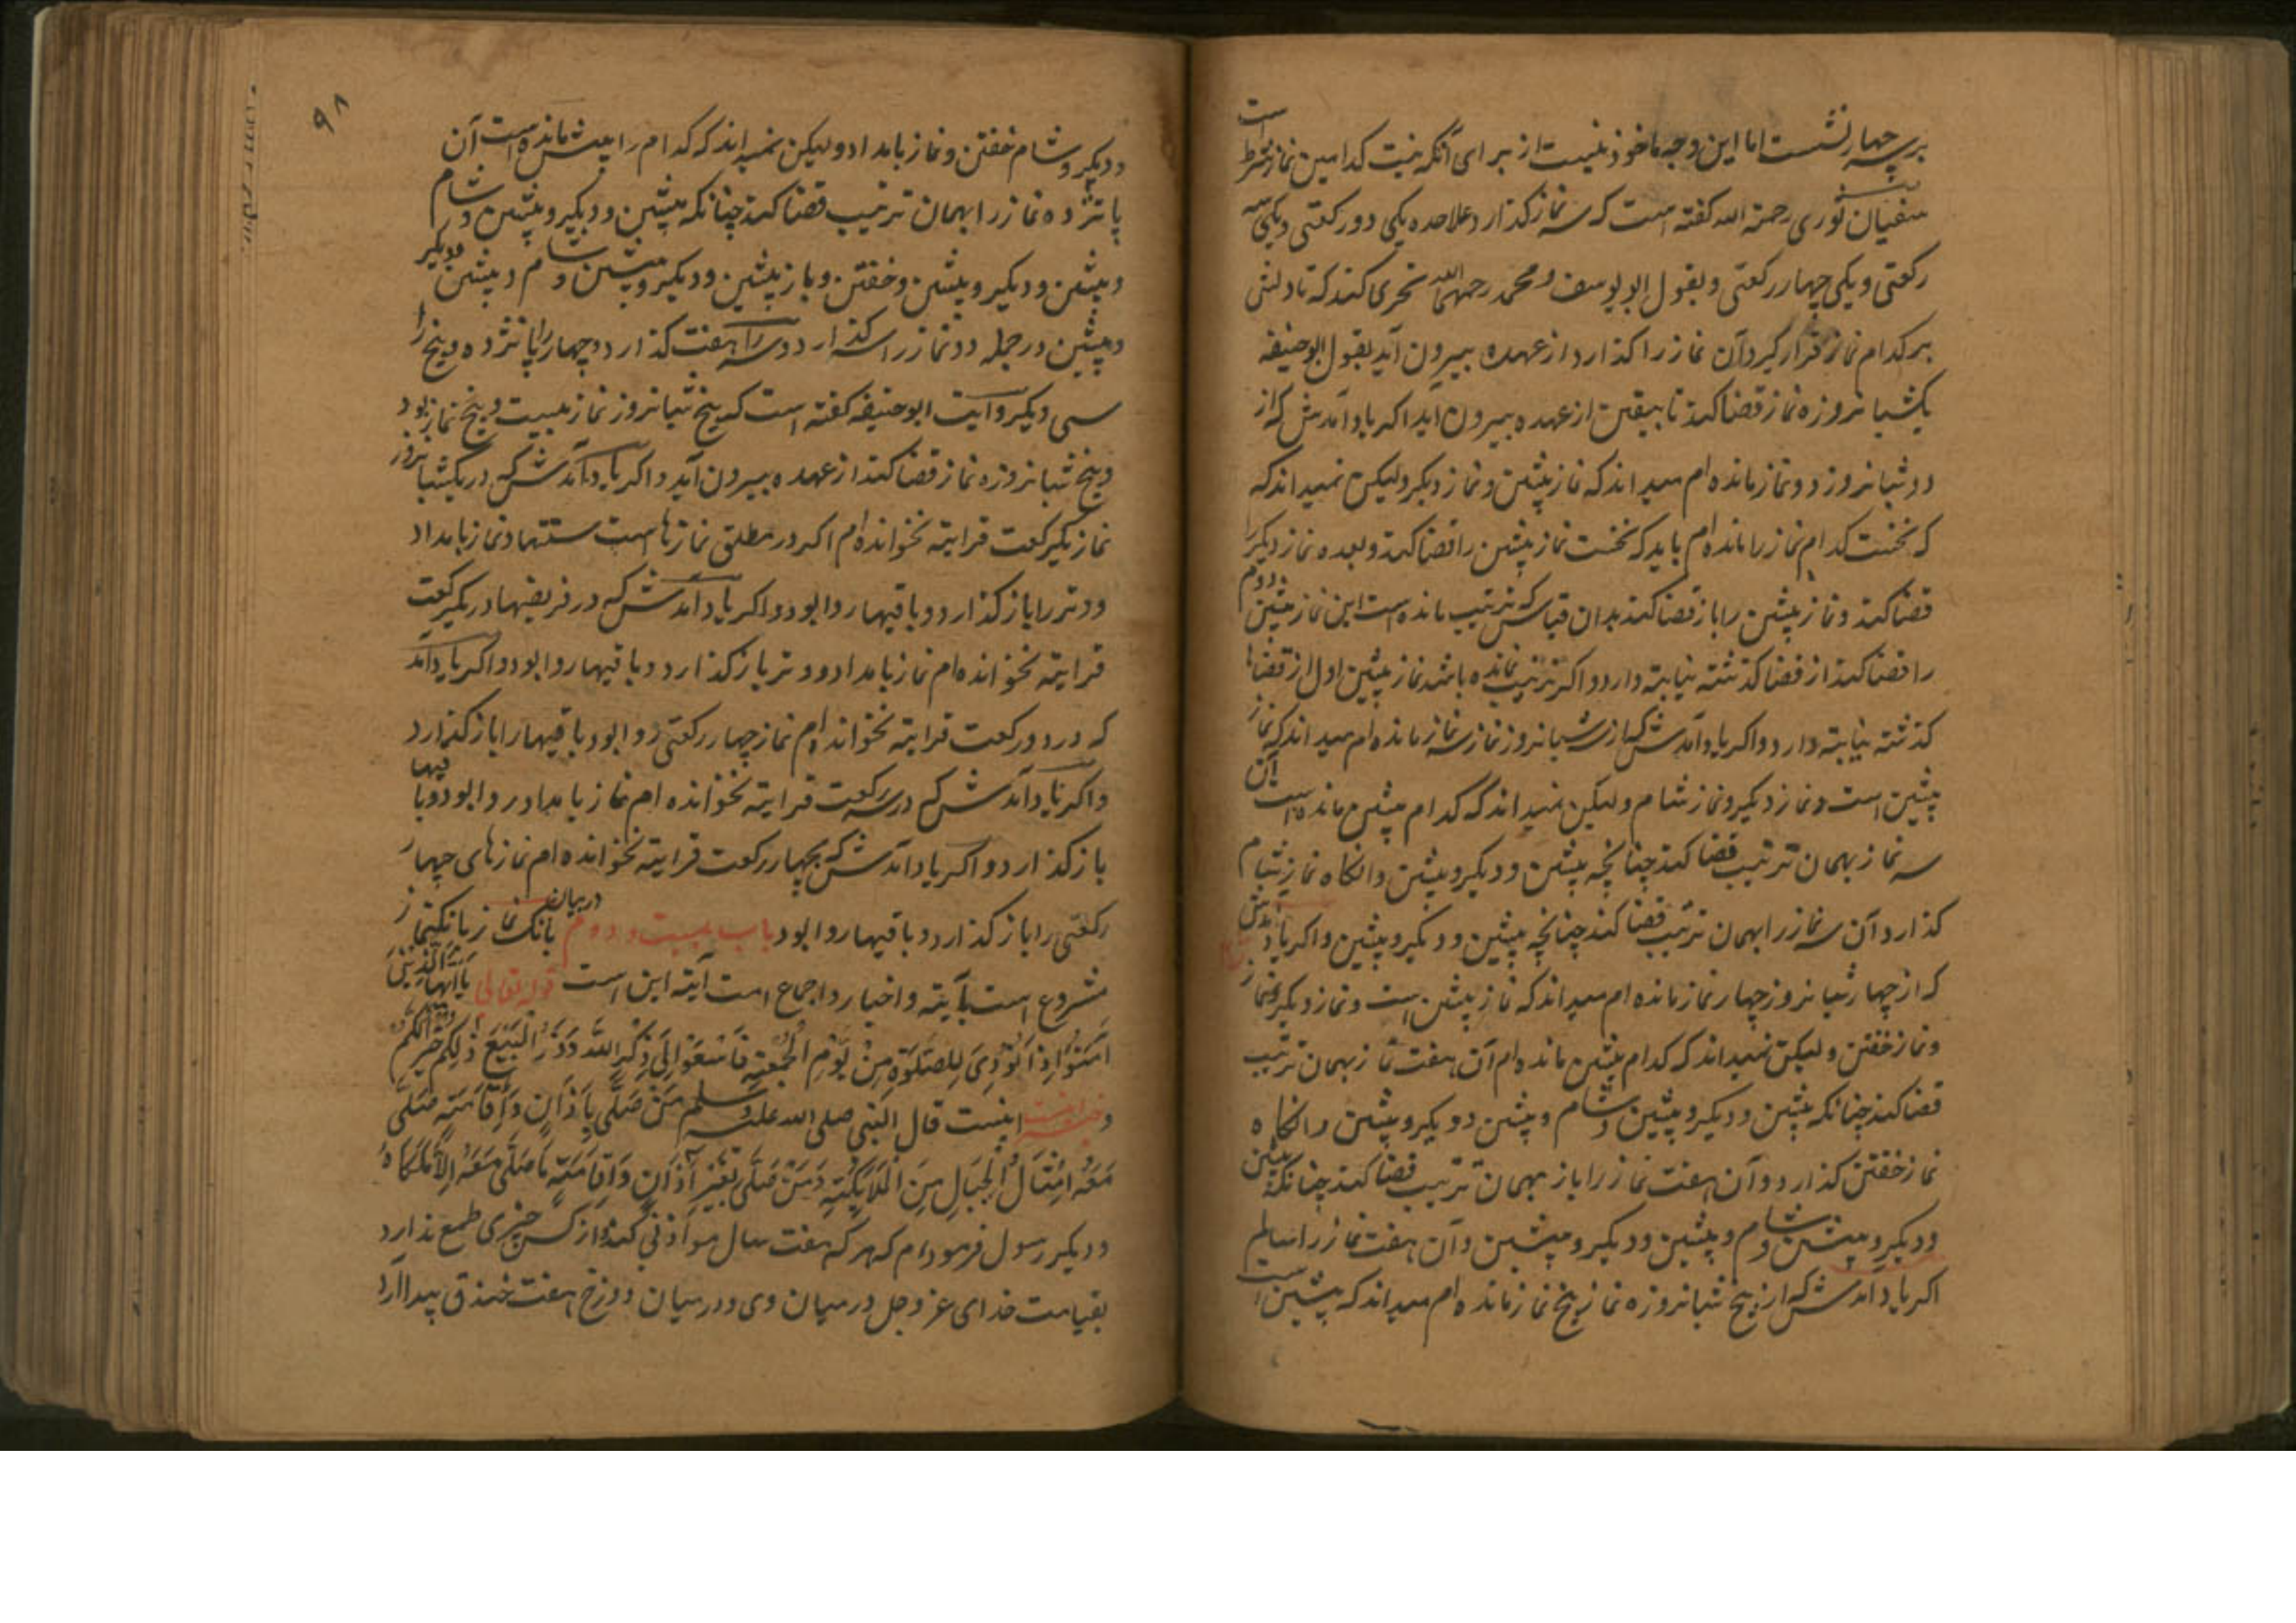 بر سه چهار نشست اما این وجه ماخوذ نیست از برای آنکه نیت کدامین نماز شرط است
سفیان ثوری رحمة الله کفته است که سه نماز کذارد علاحده یکی دو رکعتی و یکی سه
رکعتی و یکی چهار رکعتی و بقول ابو یوسف و محمد رحمهما الله تحری کند که تا دلش
بر کدام نماز قرار کیرد آن نماز را کذارد از عهده بیرون آید بقول ابو حنیفه
یکشبانروزه نماز قضا کند تا بیقین از عهده بیرون اید اکر یاد آمدش که از
دو شبانروز دو نماز مانده ام میداند که نماز پیشین و نماز دیکر ولیکن نمیداند که
که نخست کدام نماز را مانده ام باید که نخست نماز پیشین را قضا کند و بعده نماز دیکر را
قضا کند و نماز پیشین را باز قضا کند بدان قیاس که ترتیب مانده است این نماز پیشین دوم
را قضا کند از قضا کذشته نیابته دارد و اکر ترتیب نمانده باشد نماز پیشین اول از قضاها
کذشته نیابته دارد و اکر یاد آمدش که از سه شبانروز نماز سه نماز مانده ام میداند که نماز
پیشین است و نماز دیکر و نماز شام ولیکن نمیداند که کدام پیشین مانده است آن
سه نماز بهمان ترتیب قضا کند چنانچه پیشین و دیکر و پیشین وانکاه نماز شام
کذارد آن سه نماز را بهمان ترتیب قضا کند چنانچه پیشین و دیکر و پیشین و اکر یاد آمدش
که از چهار شبانروز چهار نماز مانده ام میداند که نماز پیشین است و نماز دیکر و نماز
و نماز خفتن ولیکن نمیداند که کدام پیشین مانده ام آن هفت نماز بهمان ترتیب
قضا کند چنانکه پیشین و دیکر و پیشین و شام و پیشین و دیکر و پیشین وانکاه
نماز خفتن کذارد و آن هفت نماز را باز بهمان ترتیب قضا کند چنانکه پیشین
و دیکر و پیشین و شام و پیشین و دیکر و پیشین و آن هفت نماز را سالم
اکر یاد امدش که از پنج شبانروزه نماز پنج نماز مانده ام میداند که پیشین است
۹۸
و دیکر و شام خفتن و نماز بامداد ولیکن نمیداند که کدام را پیش مانده است آن
پانزده نماز را بهمان ترتیب قضا کند چنانکه پیشین و دیکر و پیشین و شام
و پیشین و دیکر و پیشین و خفتن و باز پیشین و دیکر و پیشین و شام و پیشین و دیکر
و پیشین در جمله دو نماز را سه کذارد و سه را هفت کذارد و چهار را پانزده و پنج را
سی و یکی روایت ابو حنیفه کفته است که پنج شبانروز نماز بیست و پنج نماز بود
و پنج شبانروزه نماز قضا کند از عهده بیرون آید و اکر یاد آمدش که در یکشبانروز
نماز یکرکعت قرایته نخوانده ام اکر در مطلق نمازها است سنتها و نماز بامداد
و وتر را باز کذارد و باقیها روا بود و اکر یاد آمدش که در فریضها در یکرکعت
قرایته نخوانده ام نماز بامداد و وتر باز کذارد و باقیها روا بود و اکر یاد آمد
که در دو رکعت قرایته نخوانده ام نماز چهار رکعتی روا بود باقیها را باز کذارد
و اکر یاد آمدش که در سه رکعت قرایته نخوانده ام نماز بامداد روا بود و باقیها
باز کذارد و اکر یاد آمدش که بچهار رکعت قرایته نخوانده ام نمازهای چهار
رکعتی را باز کذارد و باقیها روا بود باب بیست و دوم در بیان بانک نماز بانک نماز
مشروع است بآیته و اخبار و اجماع امت آیته این است قوله تعالی یا ایها الذین
امنوا اذا نودی للصلوة من یوم الجمعة فاسعوا الی ذکر الله وذروا البیع ذلکم خیر لکم
و خبر اینست قال النبی صلی الله علیه وسلم من صلی باذان و اقامة صلی
معه امثال الجبال من الملایکة ومن صلی بغیر اذان و اقامة ما صلی معه الا ملکاه
و دیکر رسول فرمود ام که هر که هفت سال موذنی کند و از کس چیزی طمع ندارد
بقیامت خدای عز وجل در میان وی و در میان دوزخ هفت خندق پیدا آرد